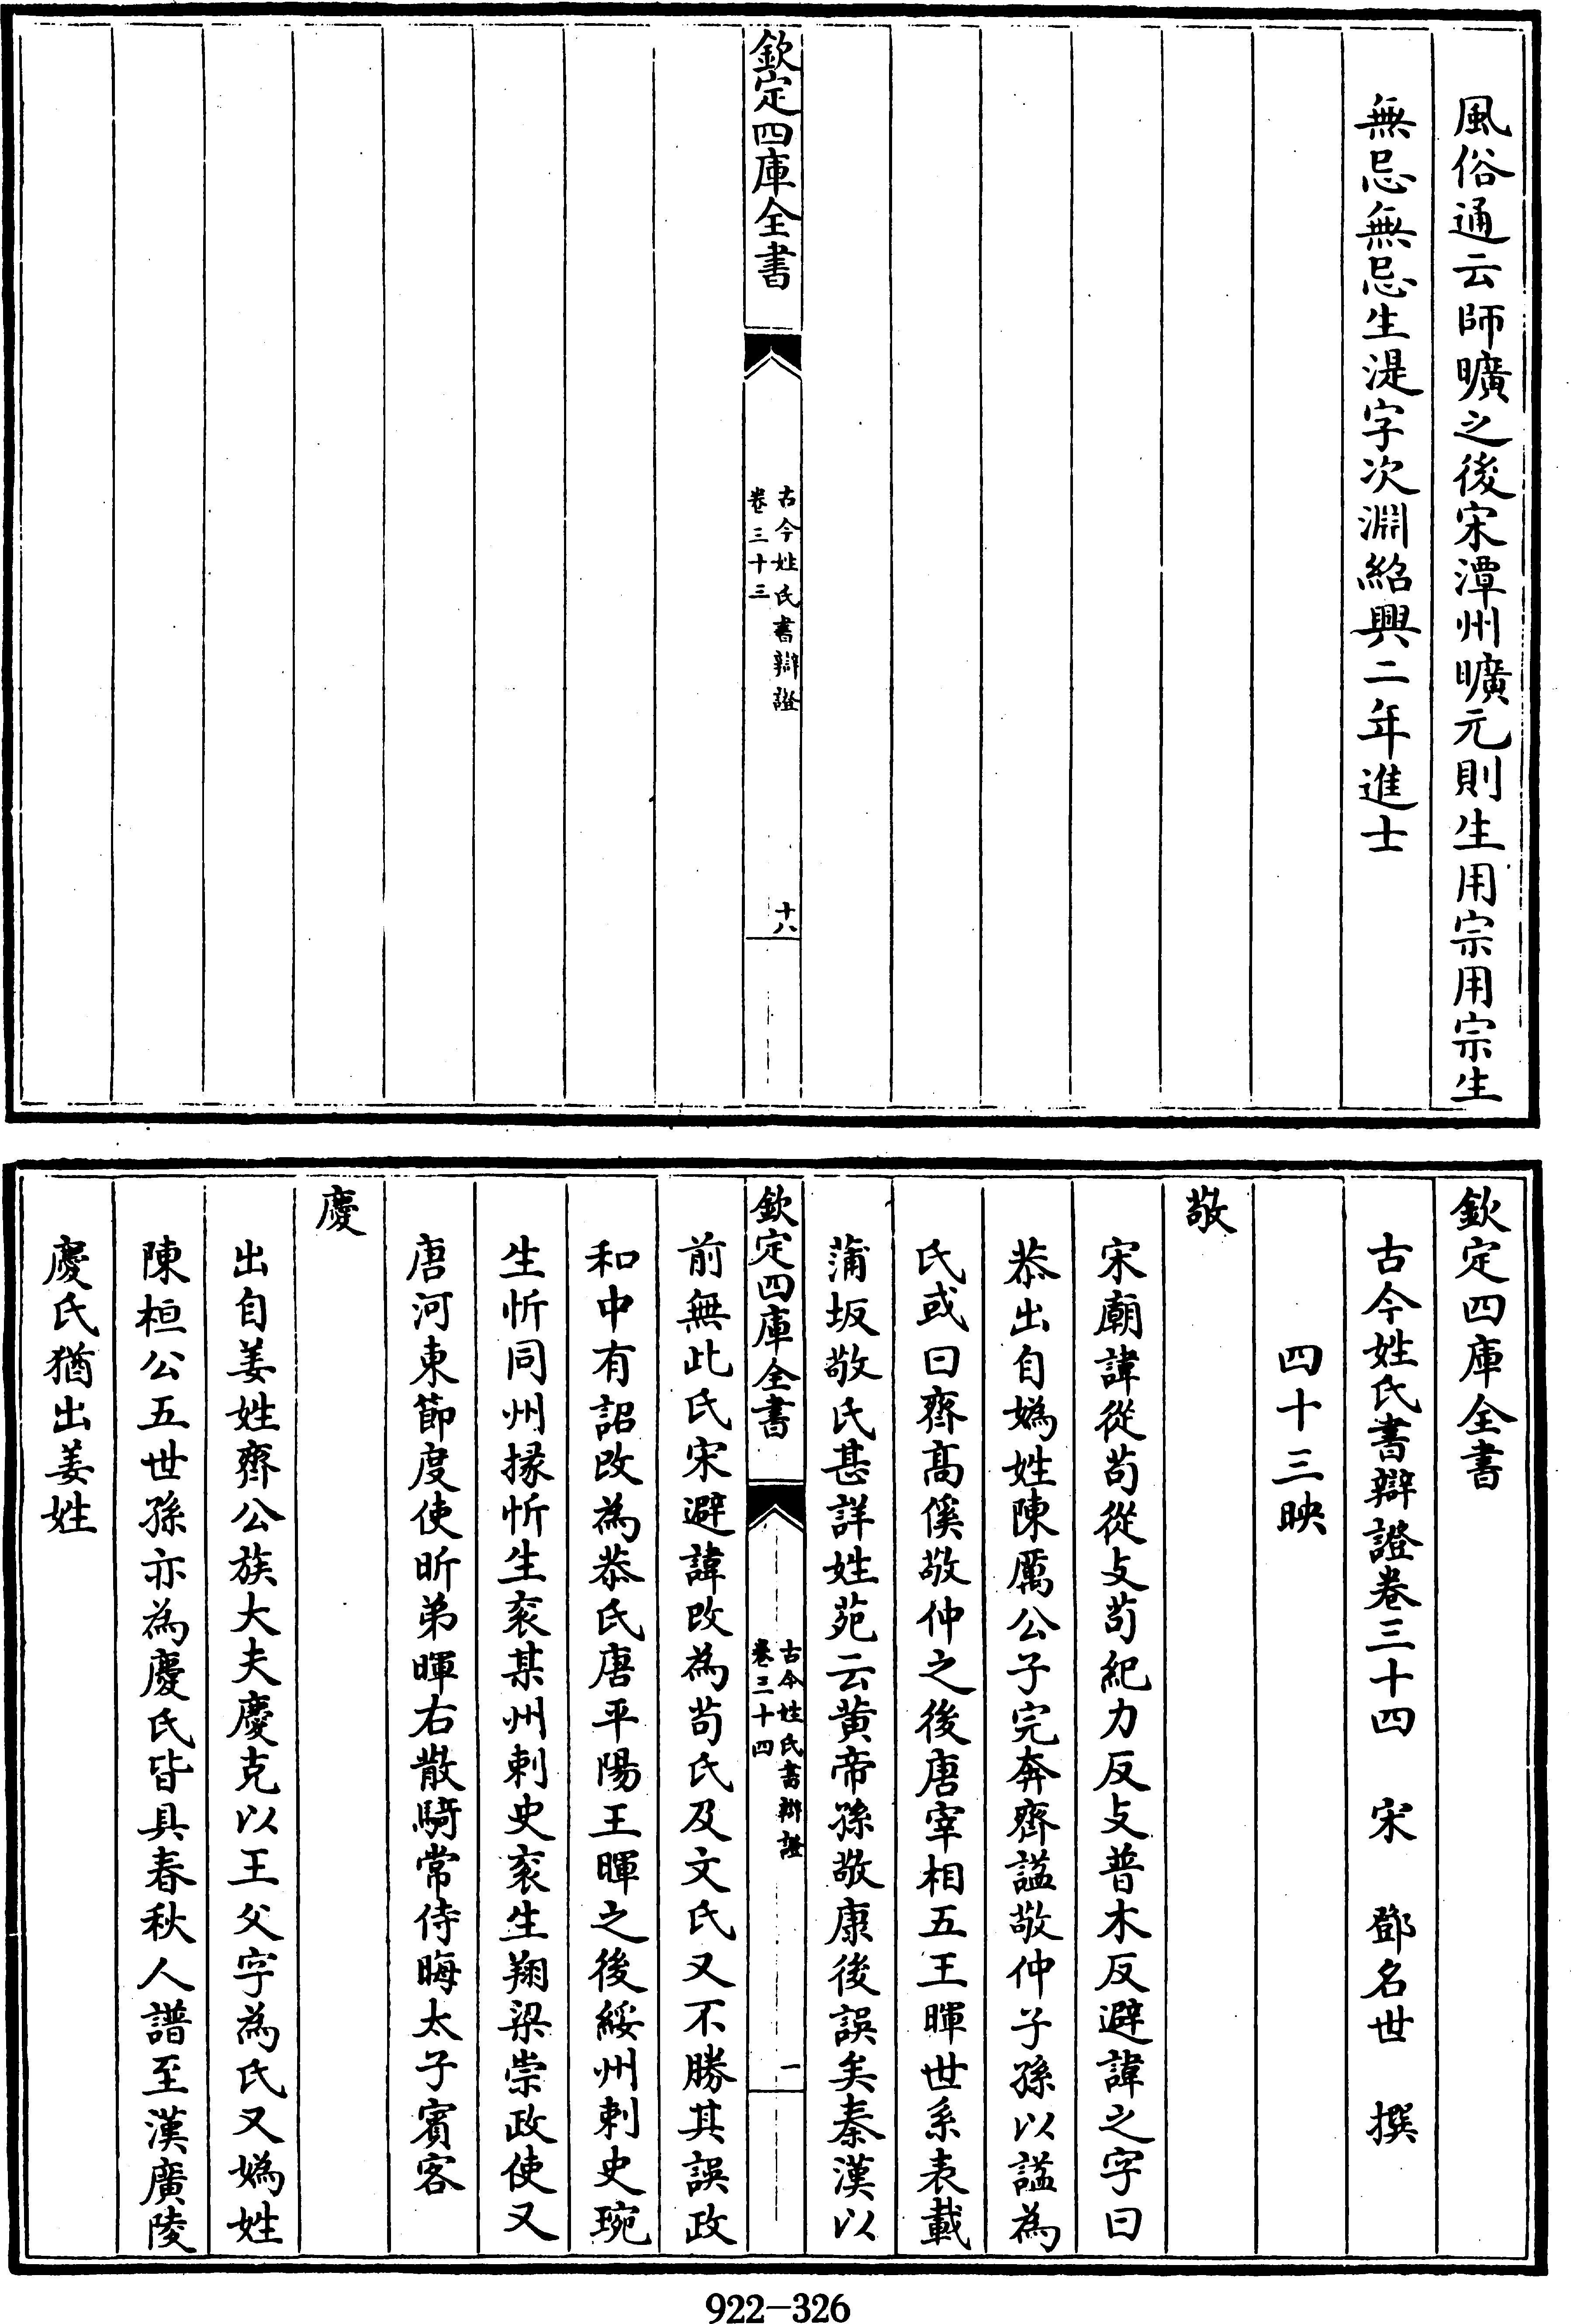 風俗通云師曠之後宋潭州曠元則生用宗用宗生
無忌無忌生湜字次淵紹興二年進士
欽定四庫全書
古今姓氏書辯證
卷三十三
十八
欽定四庫全書
古今姓氏書辯證卷三十四 宋 鄧名世 撰
四十三映
敬
宋廟諱從茍從攴茍紀力反攴普木反避諱之字曰
恭出自媯姓陳厲公子完奔齊諡敬仲子孫以諡為
氏或曰齊高傒敬仲之後唐宰相五王暉世系表載
蒲坂敬氏甚詳姓苑云黄帝孫敬康後誤矣秦漢以
欽定四庫全書
古今姓氏書辯證
卷三十四
一
前無此氏宋避諱改為茍氏及文氏又不勝其誤政
和中有詔改為恭氏唐平陽王暉之後綏州刺史琬
生忻同州掾忻生衮某州刺史衮生翔梁崇政使又
唐河東節度使昕弟暉右散騎常侍晦太子賓客
慶
出自姜姓齊公族大夫慶克以王父字為氏又媯姓
陳桓公五世孫亦為慶氏皆具春秋人譜至漢廣陵
慶氏猶出姜姓
922-326